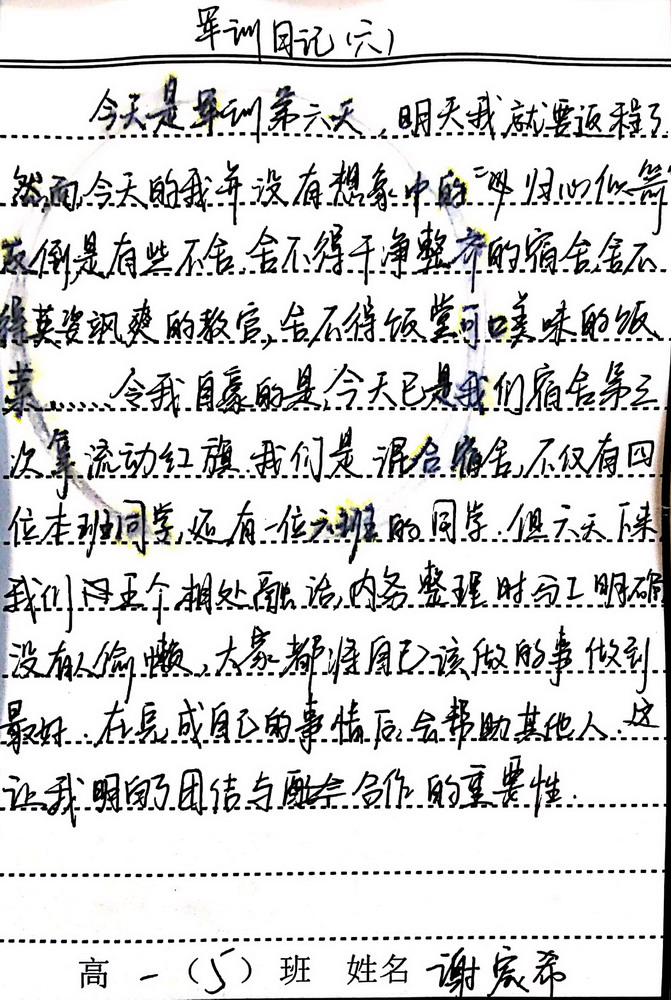 军训日记(六)
今天是军训第六天,明天我就要返程了.
然而,今天的我并没有想象中的“归心似箭”
反倒是有些不舍,舍不得干净整齐的宿舍,舍不
得英姿飒爽的教官,舍不得饭堂可口美味的饭
菜……令我自豪的是,今天已是我们宿舍第三
次拿流动红旗.我们是混合宿舍,不仅有四
位本班同学,还有一位六班的同学.但六天下来,
我们五个相处融洽,内务整理时分工明确
没有人偷懒,大家都将自己该做的事做到
最好.在完成自己的事情后,会帮助其他人.这
让我明白了团结与合作的重要性.
高一(5)班 姓名 谢宸希